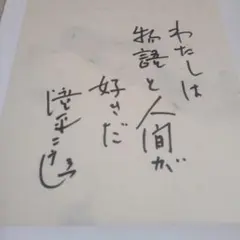 わたしは
物語と人間が
好きだ